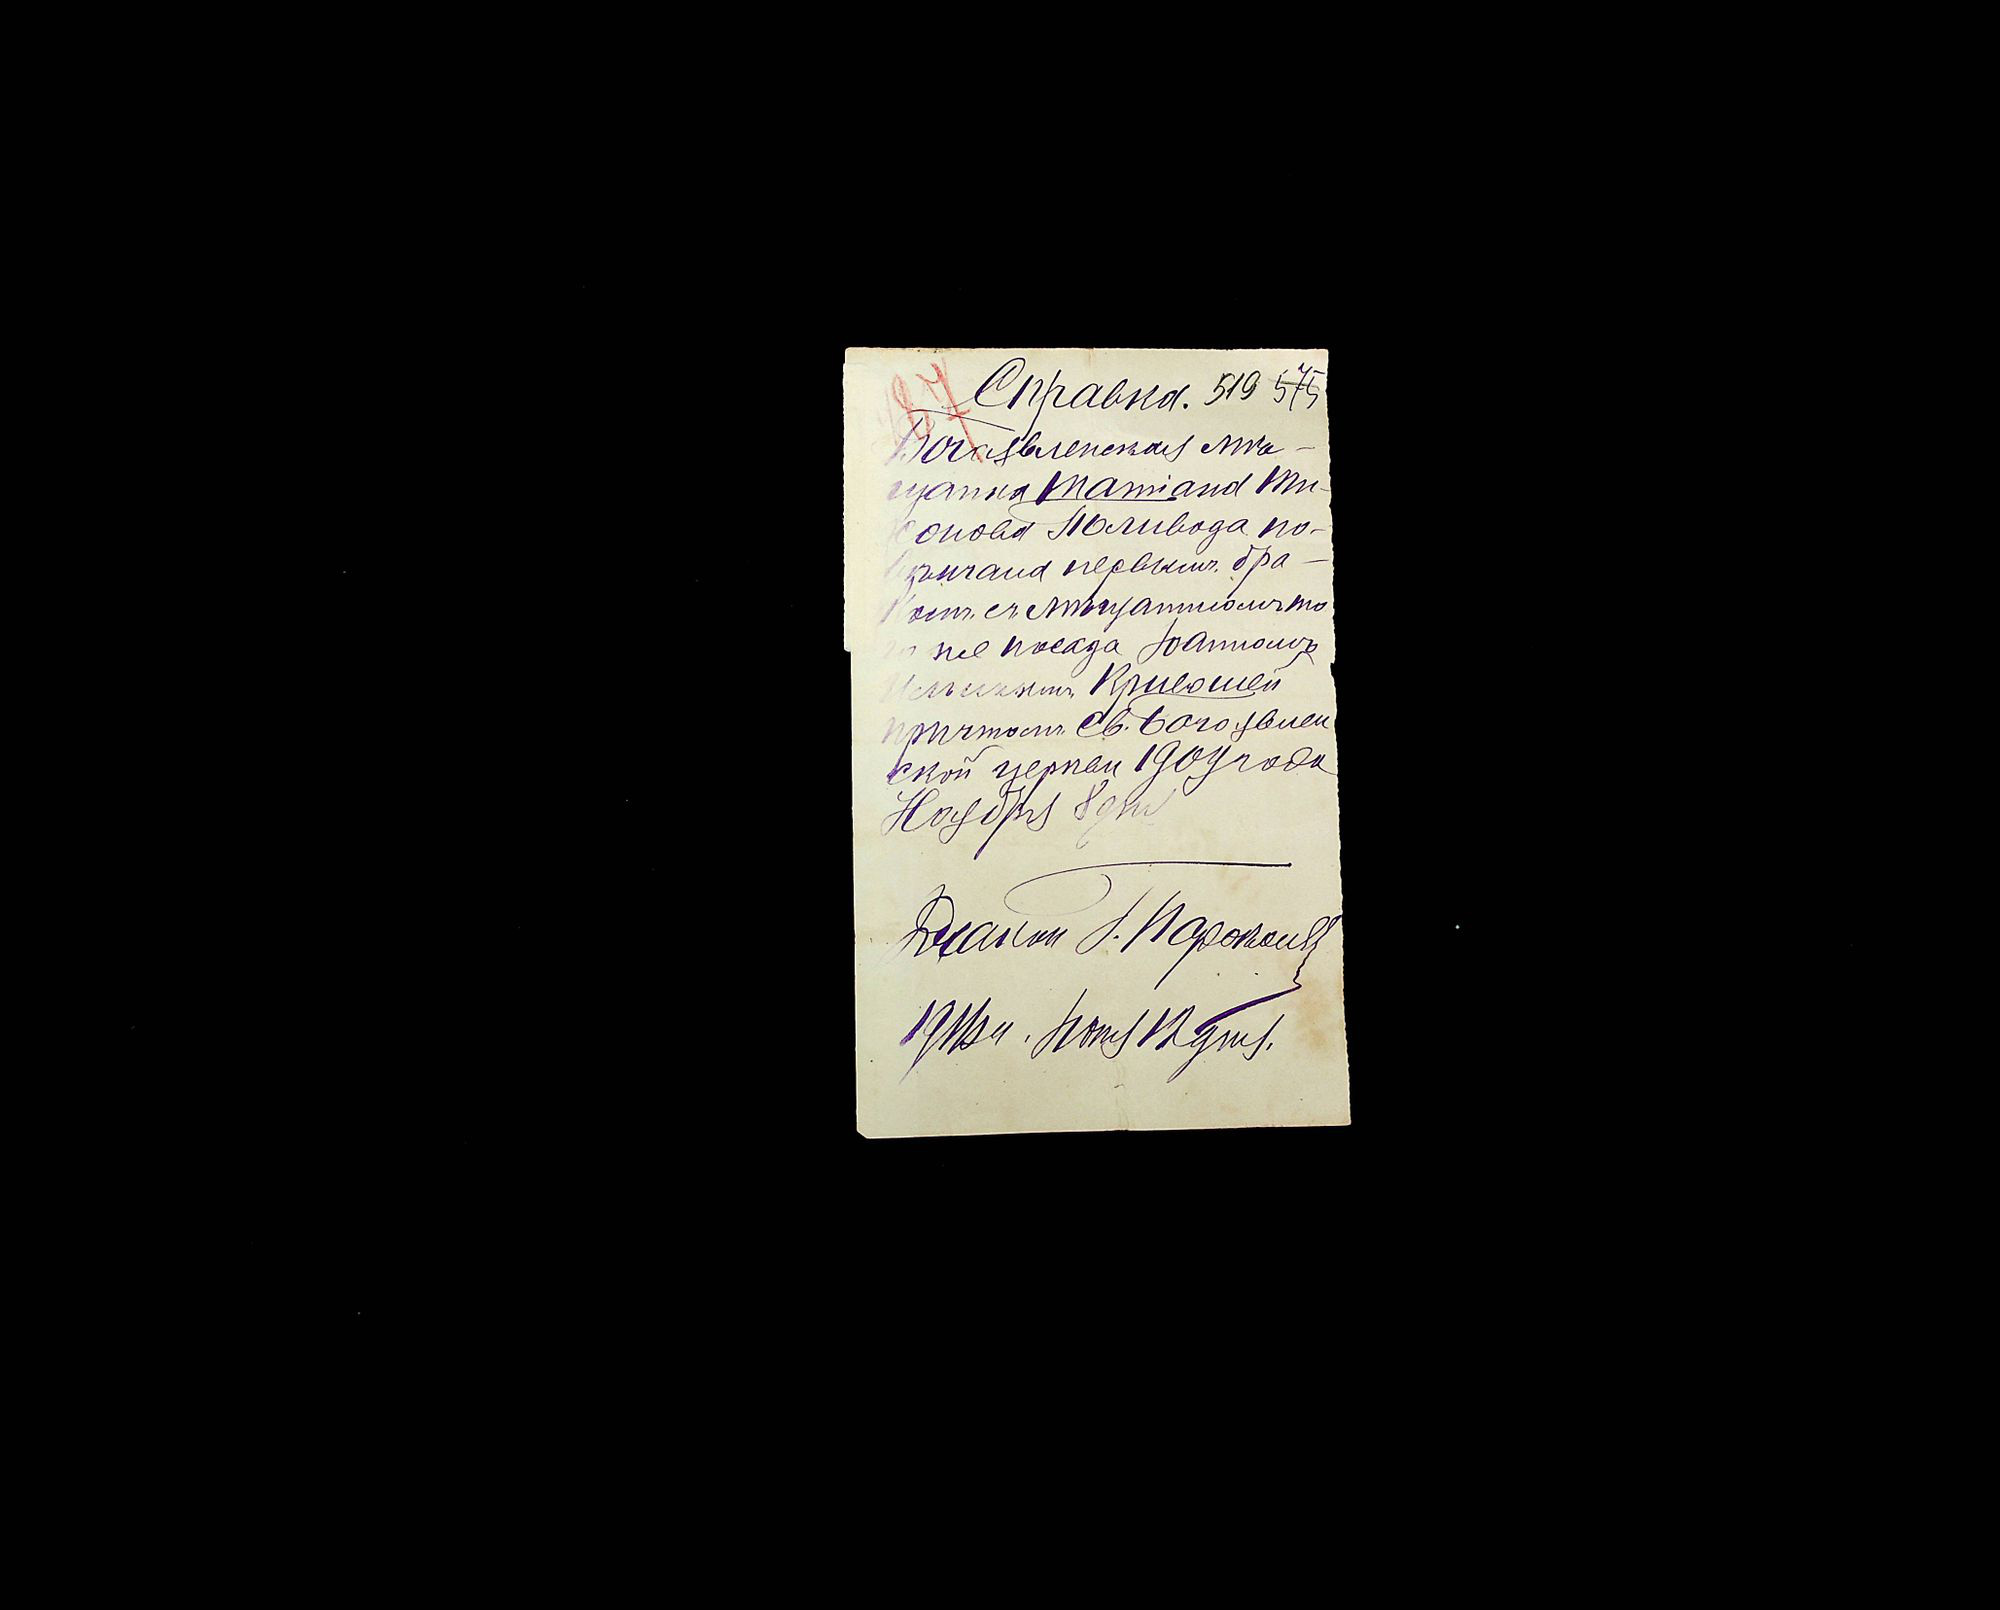 187
Справка. 519 575
Богоявленская мѣ-
щанка Татiана Ти-
хонова Поливода по-
вѣнчана первымъ бра-
комъ съ мѣщаниномъ то
го же посада Iоанномъ
Кривошей
причтомъ Св. Богоявлен
ской церкви 1909 года
Ноября 8 дня
Диакон I.
191 г. Iюня 12 дня.